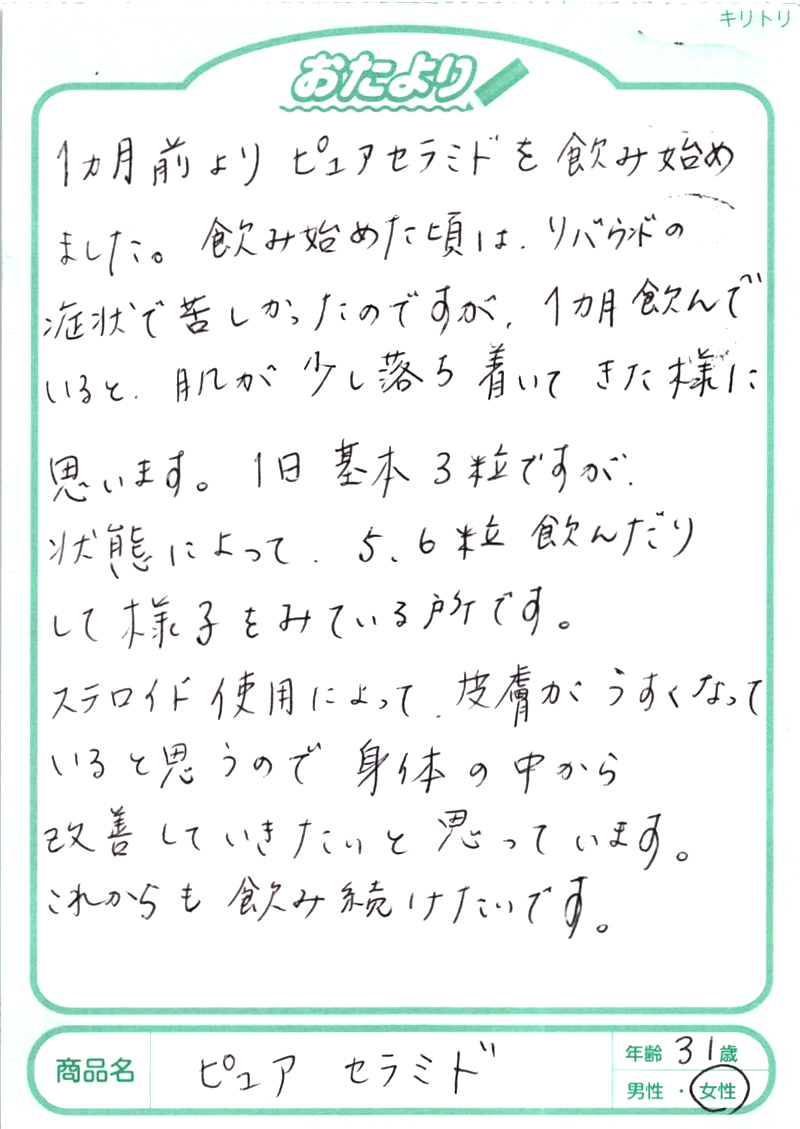 キリトリ
おたより
1カ月前より ピュアセラミドを飲み始め
ました。飲み始めた頃は、リバウンドの
症状で苦しかったのですが、1カ月飲んで
いると、肌が少し落ち着いてきた様に
思います。1日基本3粒ですが、
状態によって、5、6粒飲んだり
して様子をみている所です。
ステロイド使用によって、皮膚がうすくなって
いると思うので身体の中から
改善していきたいと思っています。
これからも飲み続けたいです。
商品名 ピュア セラミド 年齢 31歳
男性・女性